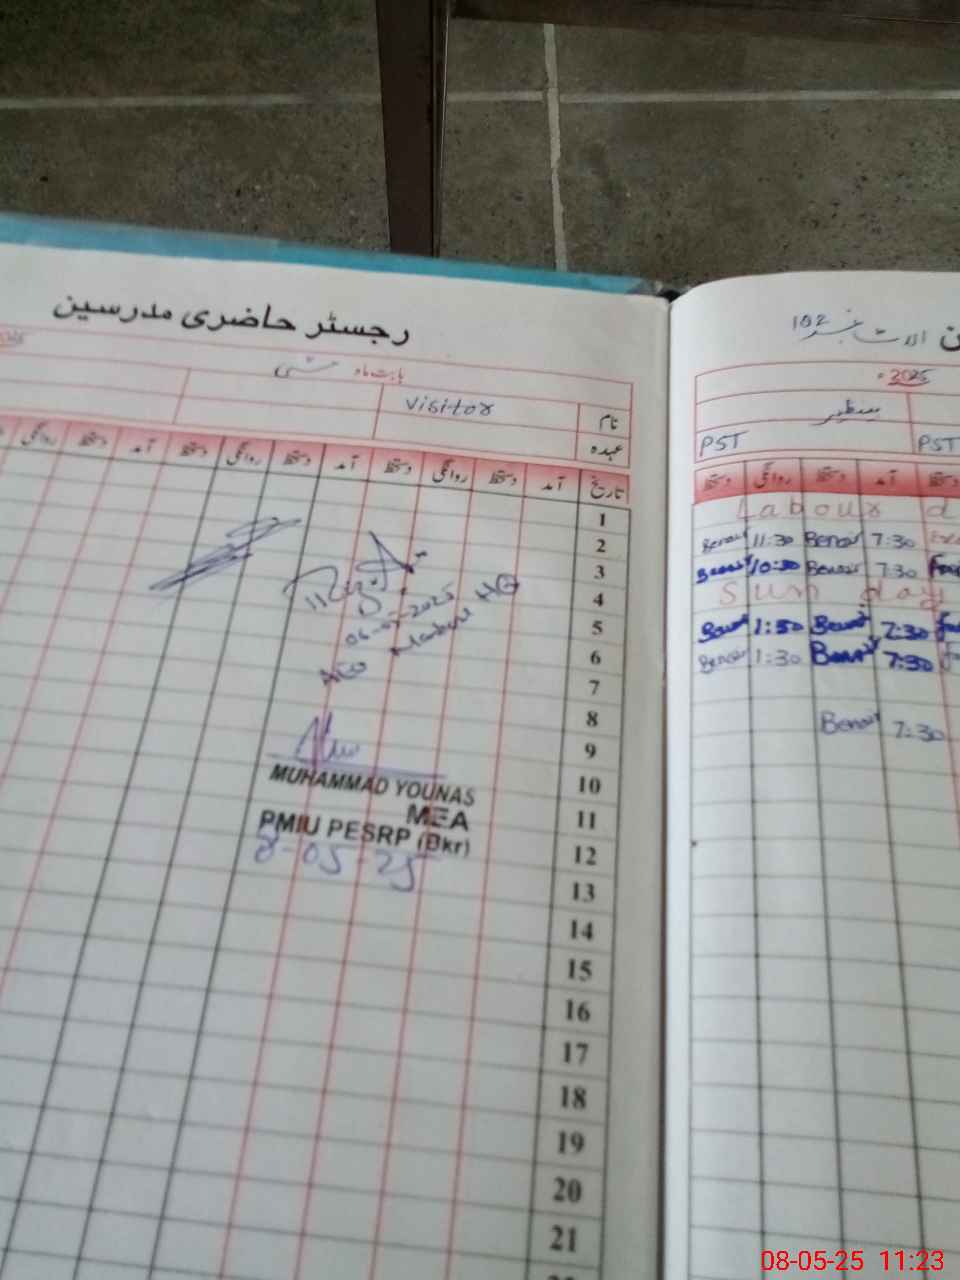 رجسٹر حاضری مدرسین
بابت ماہ مئی
Visitor
نام
عہدہ
تاریخ آمد دستخط روانگی دستخط آمد دستخط روانگی دستخط آمد دستخط روانگی
1
2
3
4
5
6
7
8
9
10
11
12
13
14
15
16
17
18
19
20
21
06-05-2025
AEO
MUHAMMAD YOUNAS
MEA
PMIU PESRP (Bkr)
8-05-25
102
2025
بینظیر
PST PST
دستخط آمد دستخط روانگی دستخط
Labour d
Benazir 11:30 Benazir 7:30
Benazir 10:30 Benazir 7:30
Sunday
Benazir 1:30 Benazir 7:30
Benazir 1:30 Benazir 7:30
Benazir 7:30
08-05-25 11:23